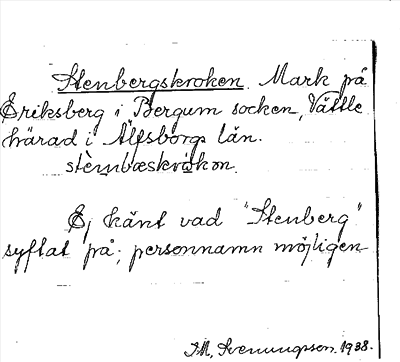 Stenbergskroken. Mark på
Eriksberg i Bergum socken, Vättle
härad i Älfsborgs län.
stèmbæskrὼkən.
Ej känt vad "Stenberg"
syftat på; personnamn möjligen
J.M. Svenungsson. 1938.